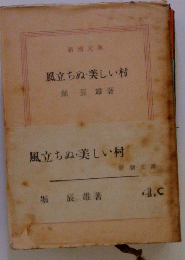 新潮文庫
風立ちぬ・美しい村
堀辰雄著
風立ちぬ・美しい村
新潮文庫
堀辰雄著